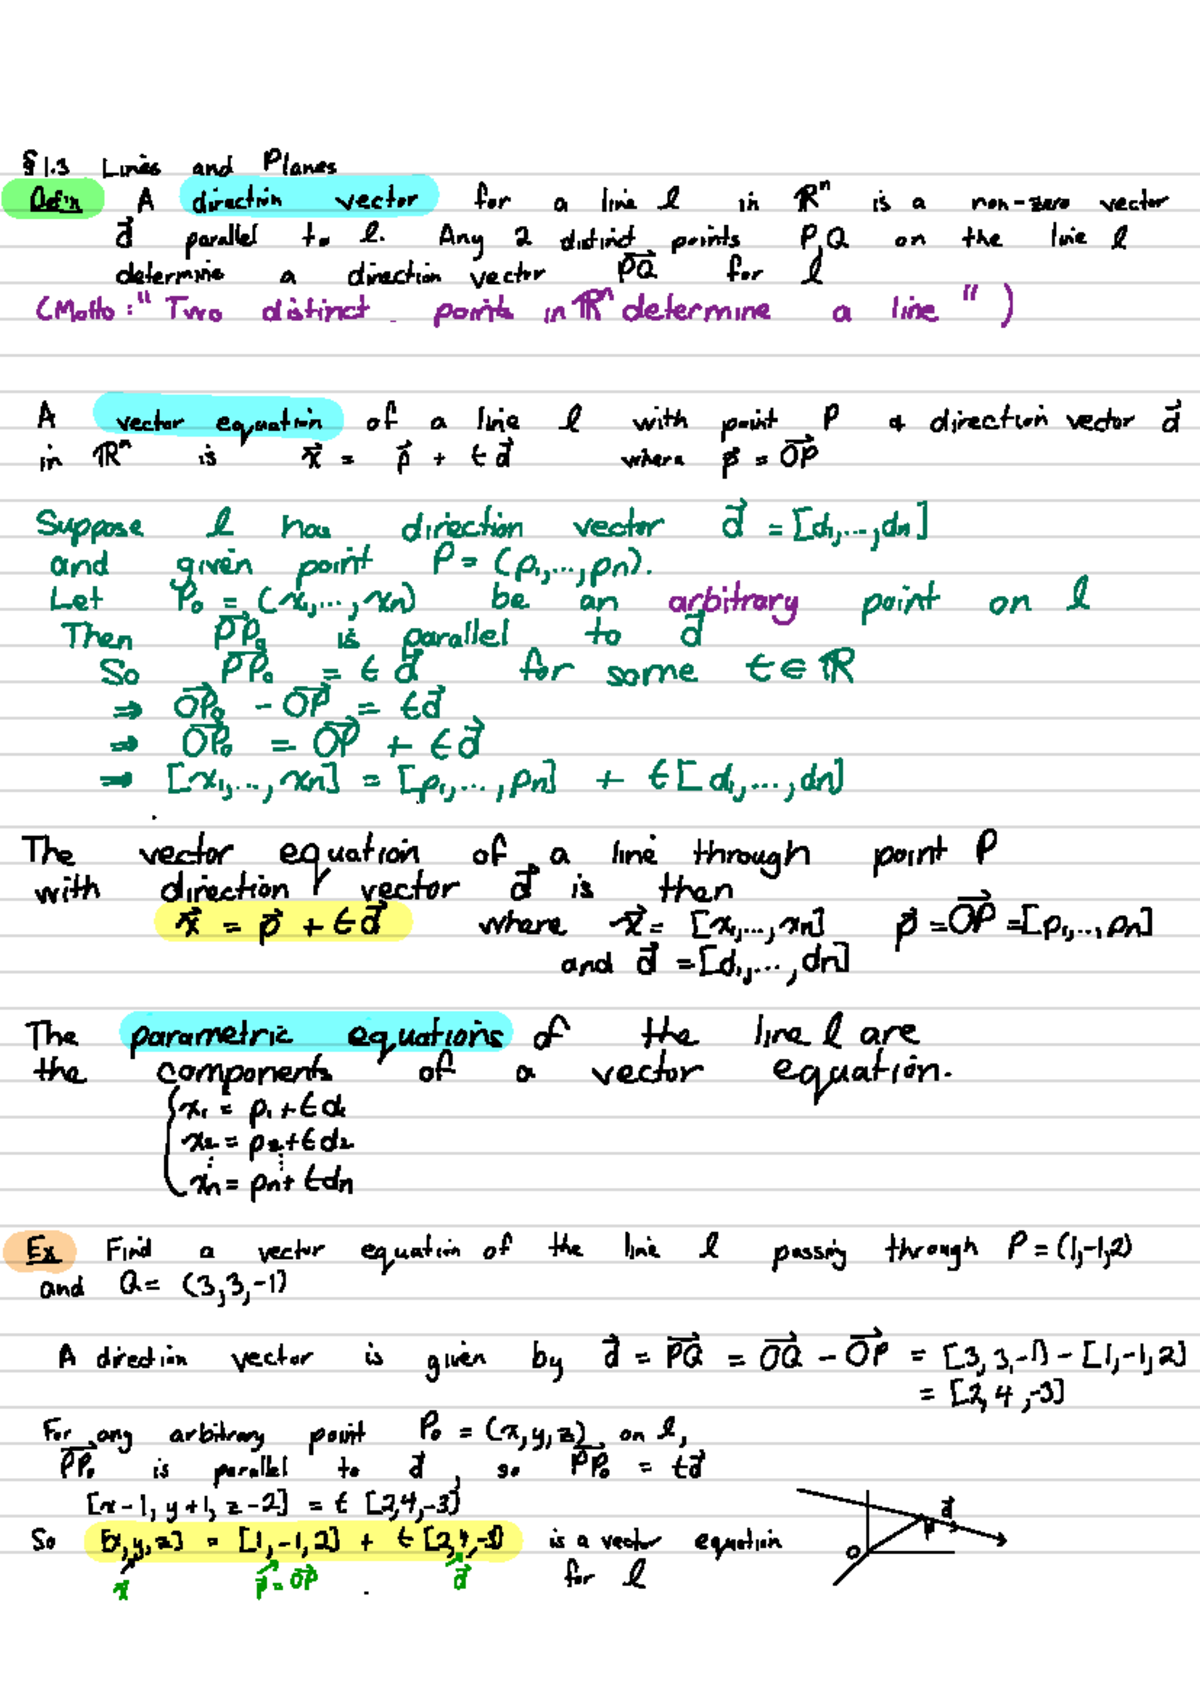 §1.3 Lines and Planes
Def'n A direction vector for a line l in ℝⁿ is a non-zero vector
d⃗ parallel to l. Any 2 distinct points P,Q on the line l
determine a direction vector PQ⃗ for l
(Motto: "Two distinct points in ℝⁿ determine a line")
A vector equation of a line l with point P & direction vector d⃗
in ℝⁿ is x⃗ = p⃗ + t d⃗ where p⃗ = OP⃗
Suppose l has direction vector d⃗ = [d₁,...,dn]
and given point P = (p₁,...,pn).
Let P₀ = (x₁,...,xn) be an arbitrary point on l
Then PP₀⃗ is parallel to d⃗
So PP₀⃗ = t d⃗ for some t ∈ ℝ
⇒ OP₀⃗ - OP⃗ = t d⃗
⇒ OP₀⃗ = OP⃗ + t d⃗
⇒ [x₁,...,xn] = [p₁,...,pn] + t [d₁,...,dn]
The vector equation of a line through point P
with direction vector d⃗ is then
x⃗ = p⃗ + t d⃗ where x⃗ = [x₁,...,xn] p⃗ = OP⃗ = [p₁,...,pn]
and d⃗ = [d₁,...,dn]
The parametric equations of the line l are
the components of a vector equation.
x₁ = p₁ + t d₁
x₂ = p₂ + t d₂
⋮ ⋮
xn = pn + t dn
Ex Find a vector equation of the line l passing through P = (1,-1,2)
and Q = (3,3,-1)
A direction vector is given by d⃗ = PQ⃗ = OQ⃗ - OP⃗ = [3,3,-1] - [1,-1,2]
= [2,4,-3]
For any arbitrary point P₀ = (x,y,z) on l,
PP₀⃗ is parallel to d⃗, so PP₀⃗ = t d⃗
[x-1, y+1, z-2] = t [2,4,-3]
So [x,y,z] = [1,-1,2] + t [2,4,-3] is a vector equation
x⃗ p⃗ = OP⃗ d⃗ for l
d⃗
P
O